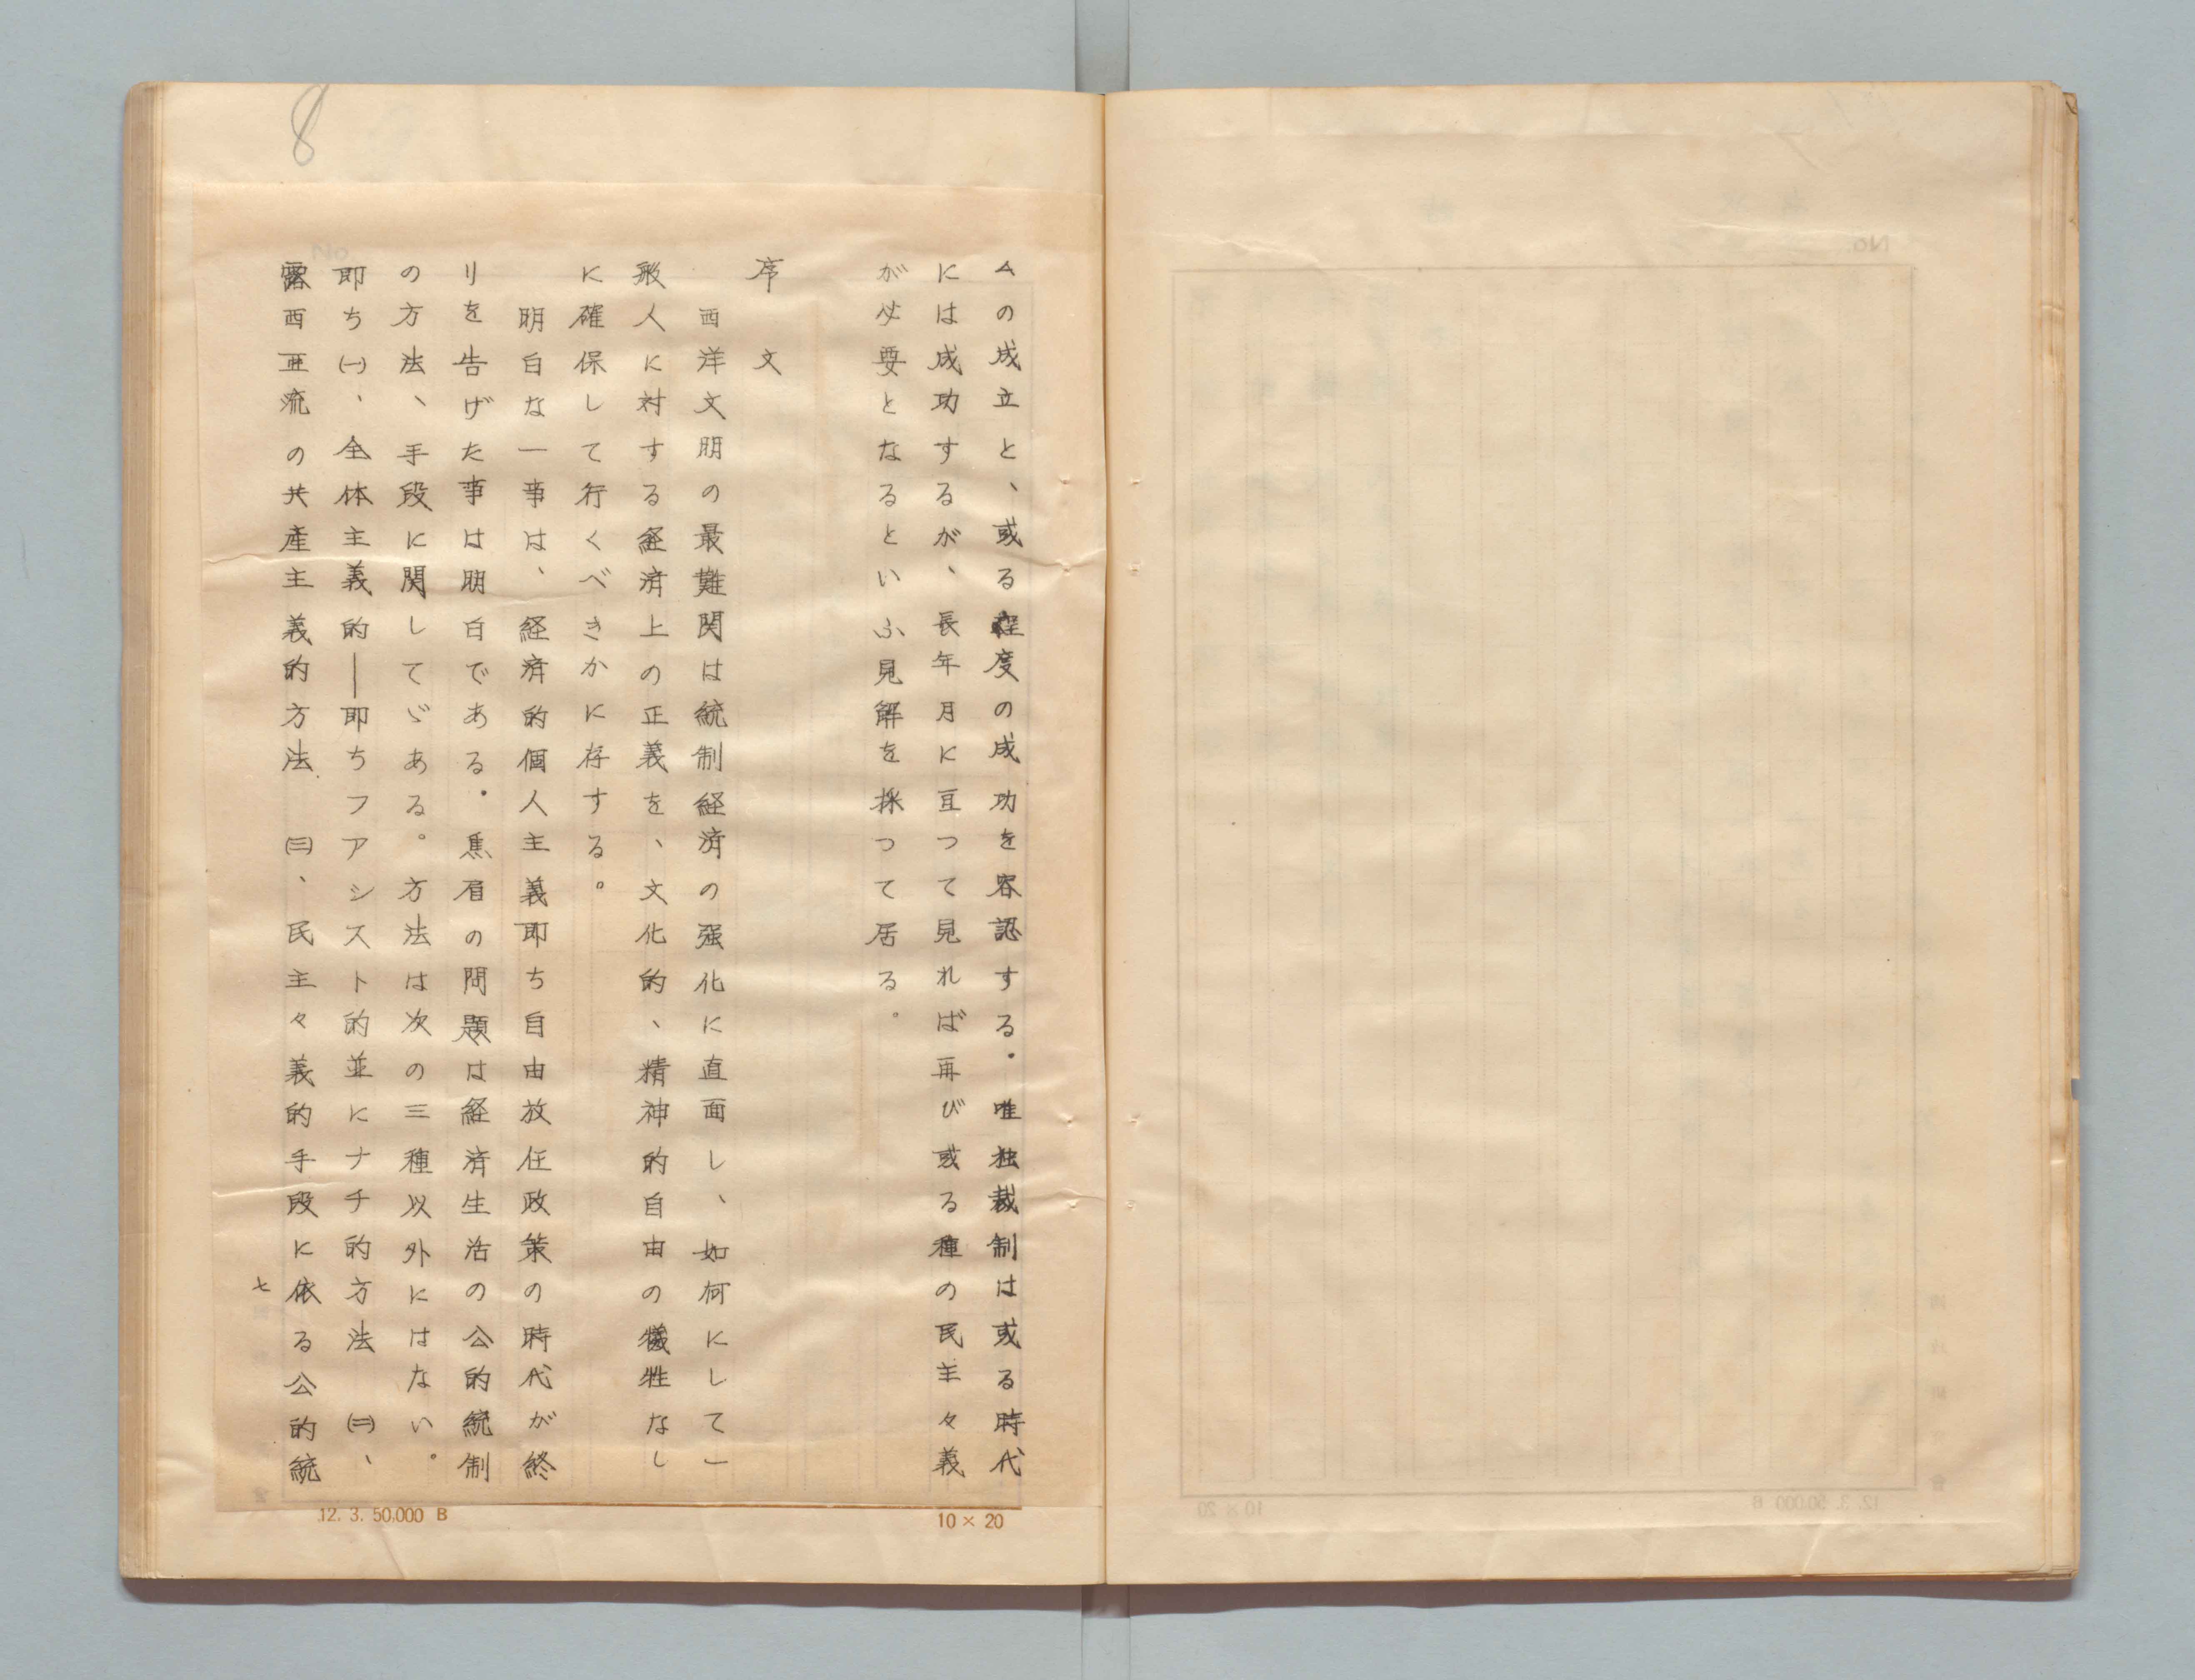 ムの成立と、或る程度の成功を容認する。唯独裁制は或る時代
には成功するが、長年月に亘つて見れば再び或る種の民主々義
が必要となるといふ見解を採つて居る。
序文
西洋文明の最難関は統制経済の强化に直面し、如何にして一
般人に対する経済上の正義を、文化的、精神的自由の犠牲なし
に確保して行くべきかに存する。
明白な一事は、経済的個人主義即ち自由放任政策の時代が終
りを告げた事は明白である。焦眉の問題は経済生活の公的統制
の方法、手段に関してゞある。方法は次の三種以外にはない。
即ち㈠、全体主義的―即ちフアシスト的並にナチ的方法 ㈡、
露西亜流の共産主義的方法 ㈢、民主々義的手段に依る公的統
七
8
12. 3. 50,000 B
10 × 20